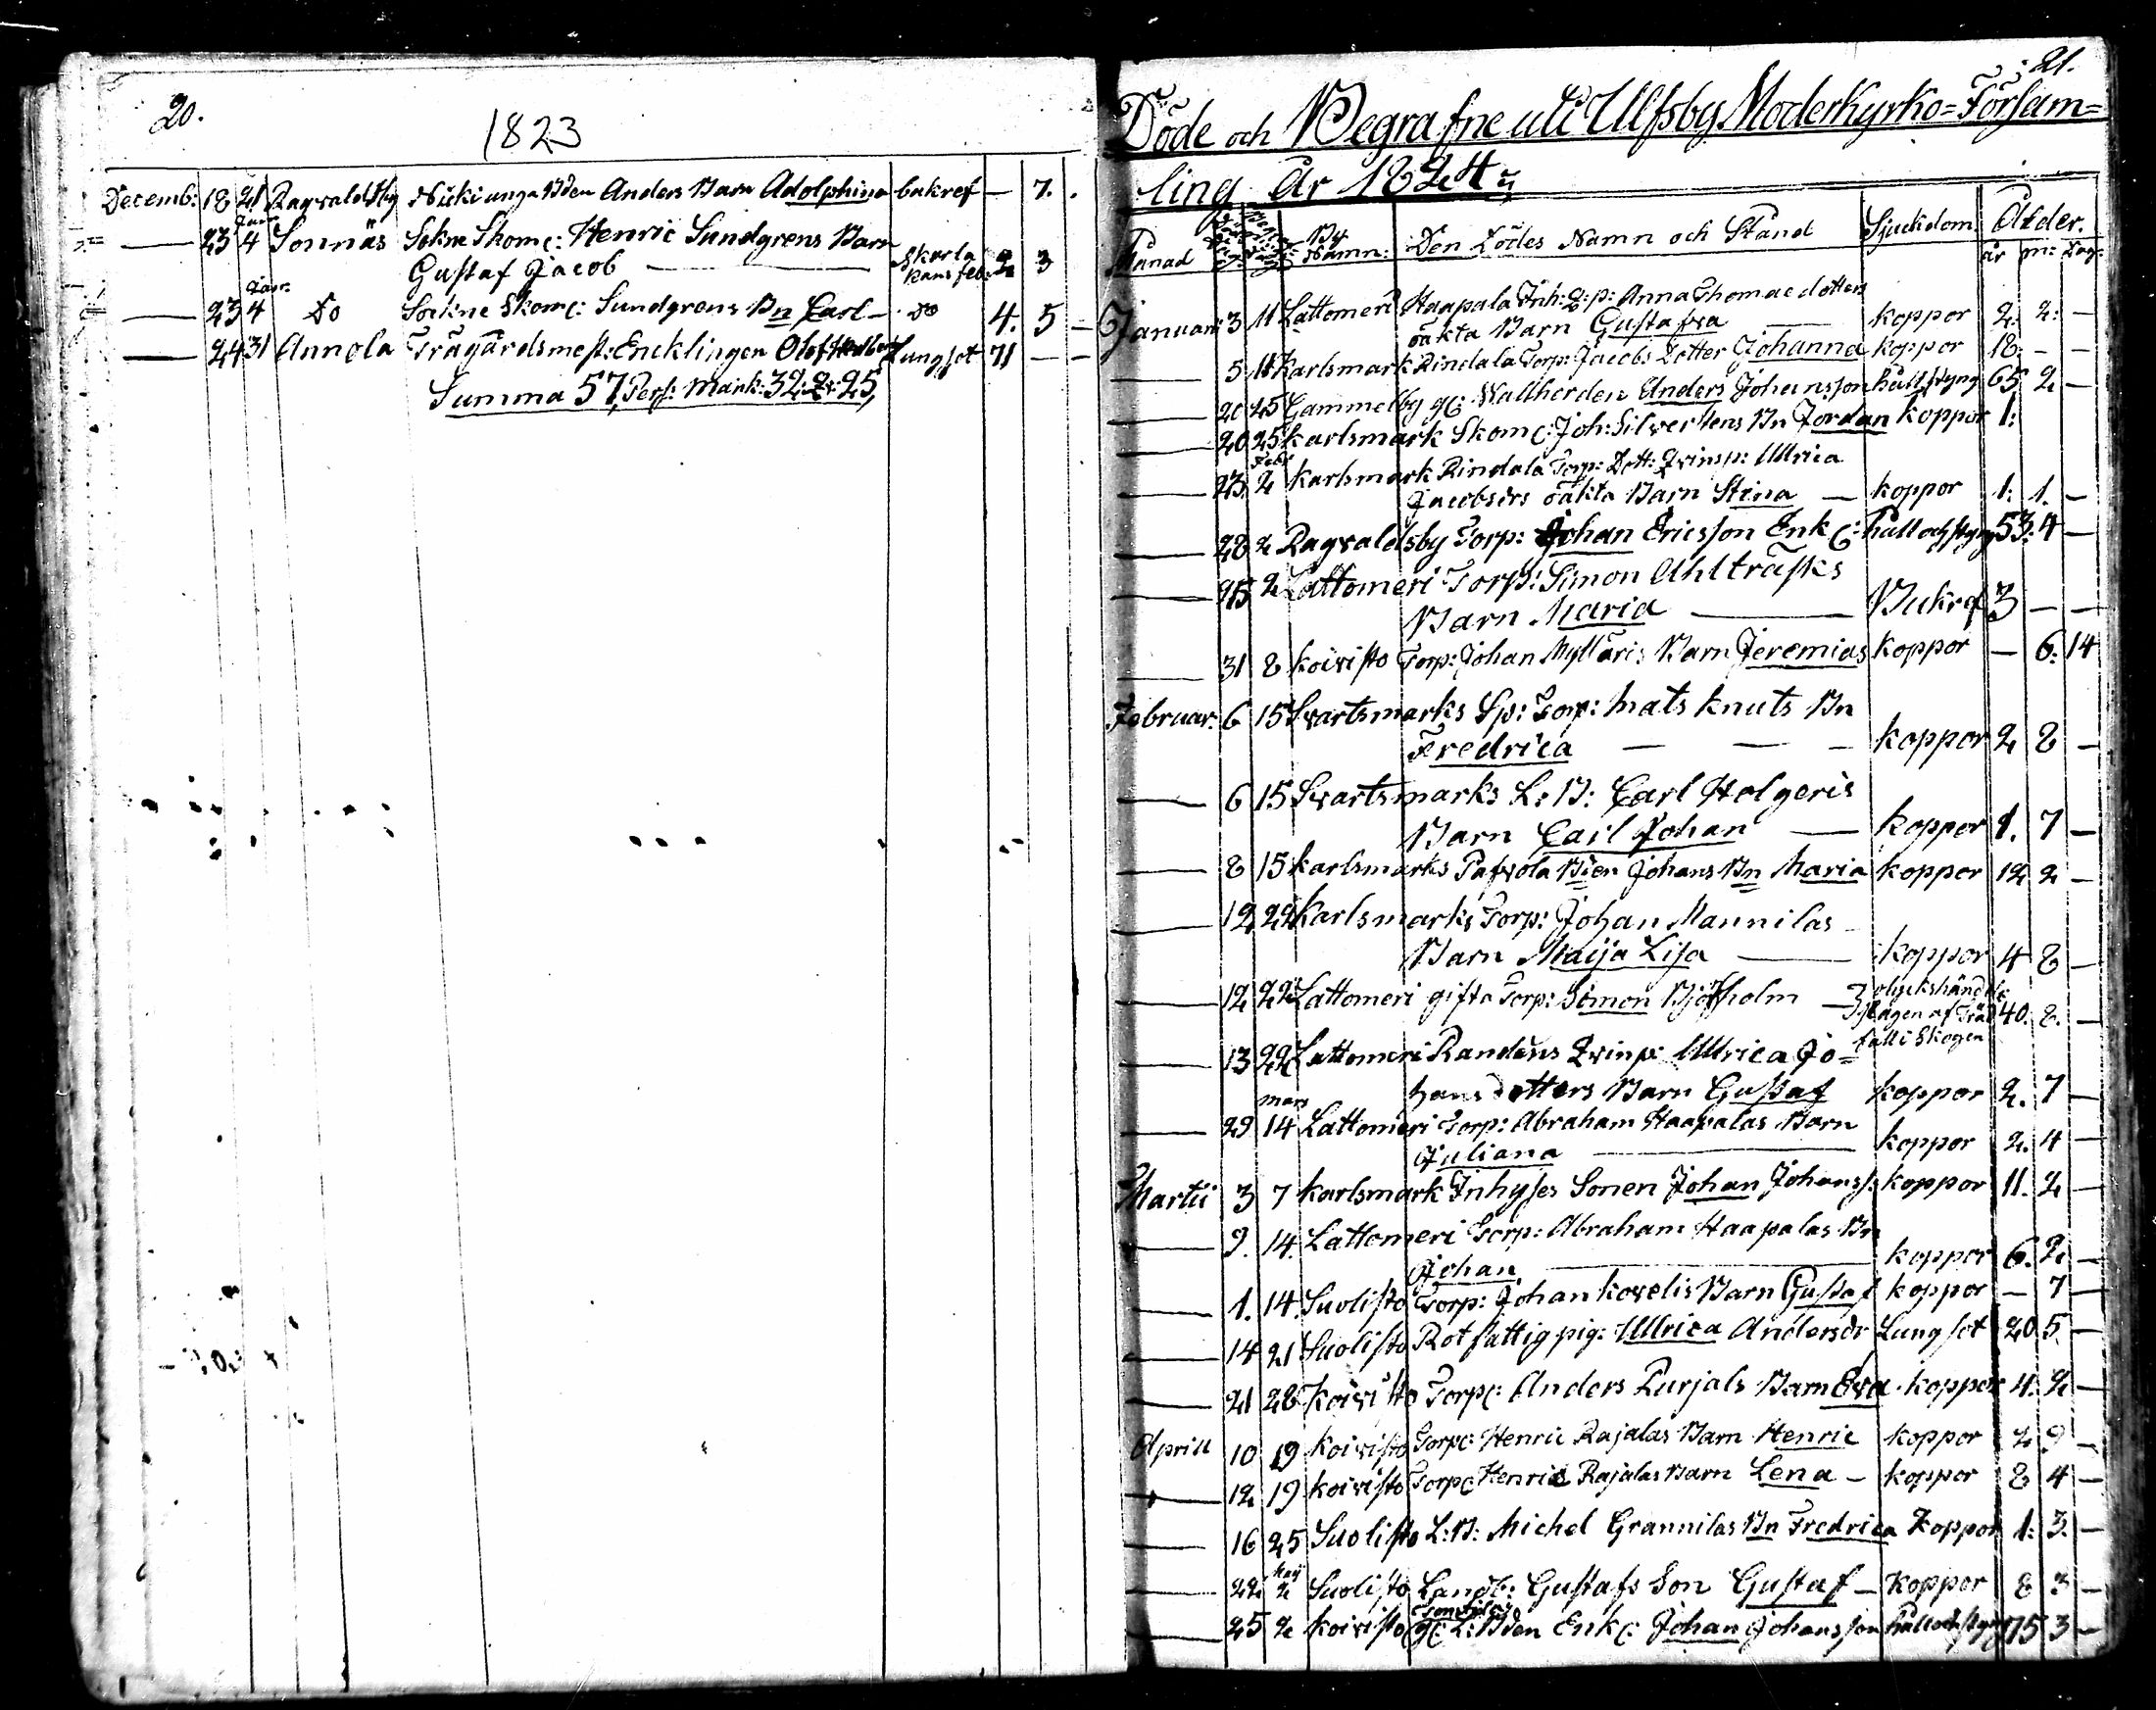 20.
1823
Decemb: 18 21 Ragvaldsby Nicki unga Bden Anders Barn Adolphina bakref — 7.
— 23 Janr: 4 Sonnäs Sokne Skom: Henric Sundgrens Barn
Gustaf Jacob — Skarla kans feb: 2 3
— 23 Janr: 4 Do Sockne Skom: Sundgrens Bn Carl — Do 4. 5 —
— 24 31 Annola Trägårdsmest: Encklingen Olof Lungsot 71 — —
Summa 57, Pers: Mank: 32. Q: 25,
21.
Döde och Begrafne uti Ulfsby Moderkyrko=Församling
År 1824
Månad By Namn: Den Dödes Namn och Stånd Sjuckdom. Ålder.
år m: Dag:
Januari 3 11 Lattomeri Haapala Inh: Q: p: Anna Thomaedotters
oäkta Barn Gustafva — koppor 2. 2. —
— 5 11 Karlsmark Rindala Torp: Jacobs Dotter Johanna koppor 18. — —
— 20 25 Gammelby gl: Wallherden Anders Johansson håll styng 65 2 —
— 20 25 Karlsmark Skom: Joh: Silvertens Bn Jordan koppor 1:
— 23. Febr 2 Karlsmark Rindala Torp: Dott: Qvinsp: Ullrica
Jacobsdrs oäkta Barn Stina — koppor 1: 1. —
— 28 2 Ragvaldsby Torp: Johan Ericsson Enk: håll och styng 53. 4 —
— 25 2 Lattomeri Torp: Simon Ahlträsks
Barn Maria — Bukref 3 — —
— 31 8 Koivisto Torp: Johan Myllaris Barn Jeremias koppor — 6. 14
Februar: 6 15 Svartsmarks Sp: Torp: Mats Knuts Bn
Fredrica — — — koppor 2 8 —
— 6 15 Svartsmarks L: B: Carl Holgeris
Barn Carl Johan — koppor 1. 7 —
— 8 15 Karlsmarks Pafvola Bden Johans Bn Maria koppor 12 2 —
— 12 22 Karlsmarks Torp: Johan Mannilas
Barn Maija Lisa — koppor 4 8 —
— 12 22 Lattomeri gifta Torp: Simon Björkholm — olyckshändelse slagen af Träd 40. 8. —
fall i Skogen
— 13 22 Lattomeri Randens Qvinsp: Ullrica Jo=
hansdotters Barn Gustaf koppor 2. 7 —
— 29 mars 14 Lattomeri Torp: Abraham Haapalas Barn
Juliana — koppor 2. 4 —
Martii 3 7 Karlsmark Inhyses Sonen Johan Johanss: koppor 11. 2 —
— 9. 14. Lattomeri Torp: Abraham Haapalas Bn
Johan — koppor 6. 2 —
— 1. 14. Suolisto Torp: Johan Kovelis Barn Gustaf koppor — 7 —
— 14 21 Suolisto Rotfattig pig: Ullrica Andersdr Lungsot 20 5. —
— 21 28 Koivisto Torp: Anders Purjals Barn Eva koppor 4. 2 —
April 10 19 Koivisto Torp: Henric Rajalas Barn Henric koppor 2 9 —
— 12 19 Koivisto Torp: Henric Rajalas Barn Lena — koppor 8 4 —
— 16 25 Suolisto L: B: Michel Grannilas Bn Fredrica Koppor 1: 3. —
— 22 May 2 Suolisto Landb: Gustafs Son Gustaf — Koppor 8 3 —
— 25 2 Koivisto gl: L: Bden Enk: Johan Johansson håll och styng 75 3 —